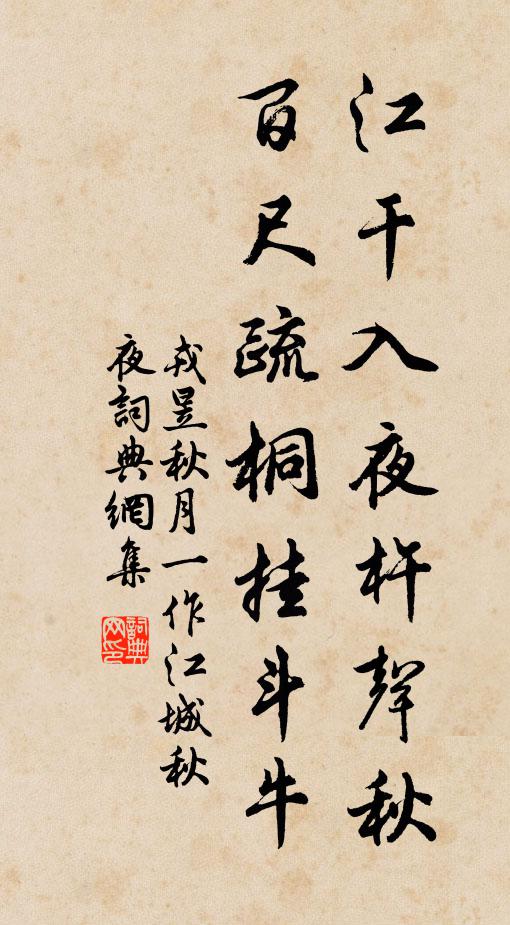 江干入夜杵聲秋
百尺疏桐挂斗牛
戎昱秋月一作江城秋
夜詞典網集
詞典網印